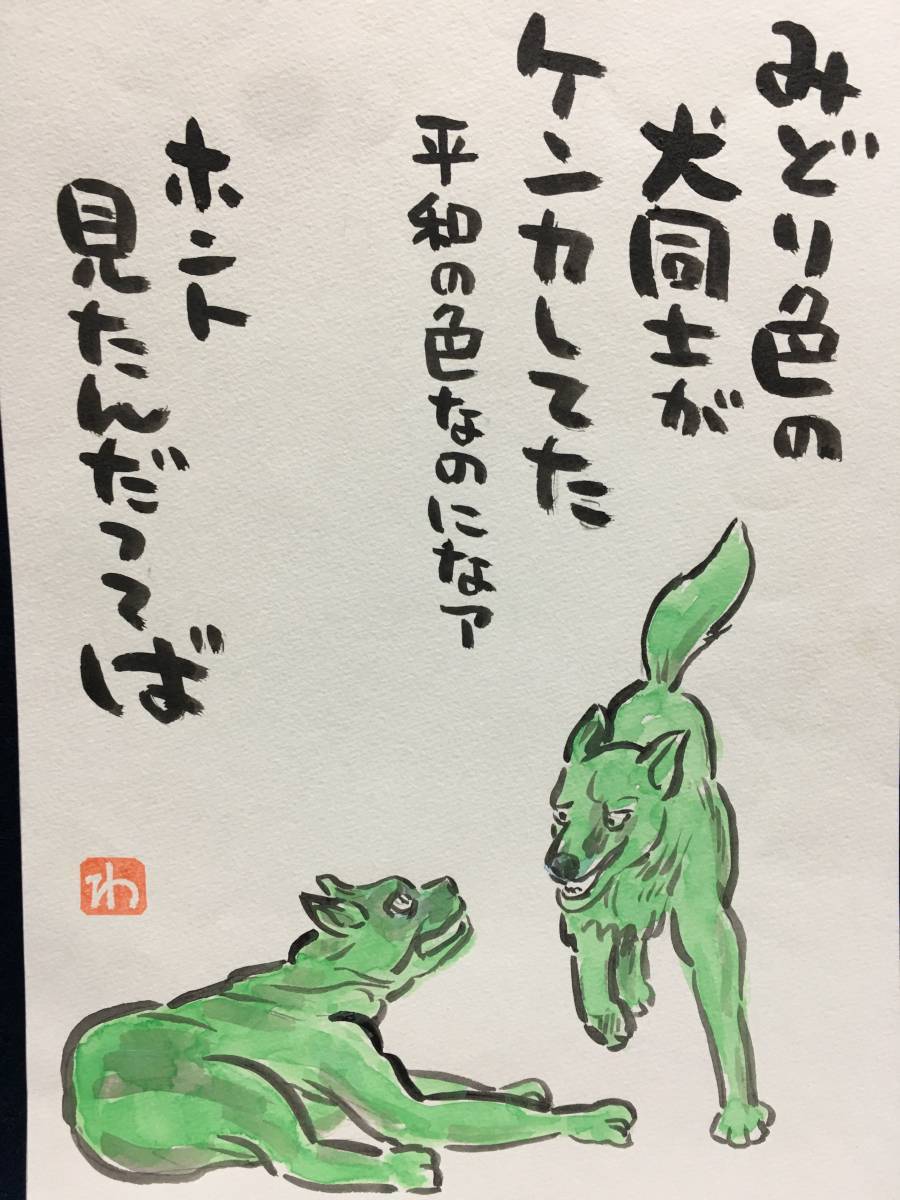 みどり色の
犬同士が
ケンカしてた
平和の色なのになァ
ホント
見たんだってば